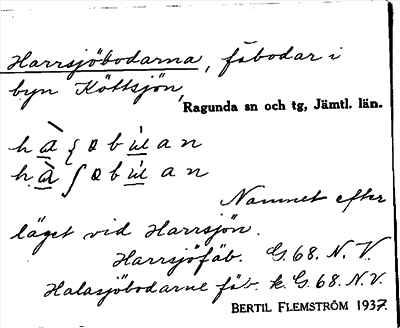 Harrsjöbodarna, fäbodar i
byn Köttsjön,
Ragunda sn och tg, Jämtl. län.
Namnet efter
läget vid Harrsjön.
Harrsjöfäb. G.68. N. V.
Halasjöbodarne fäb. k. G. 68. N. V.
BERTIL FLEMSTRÖM 1937.